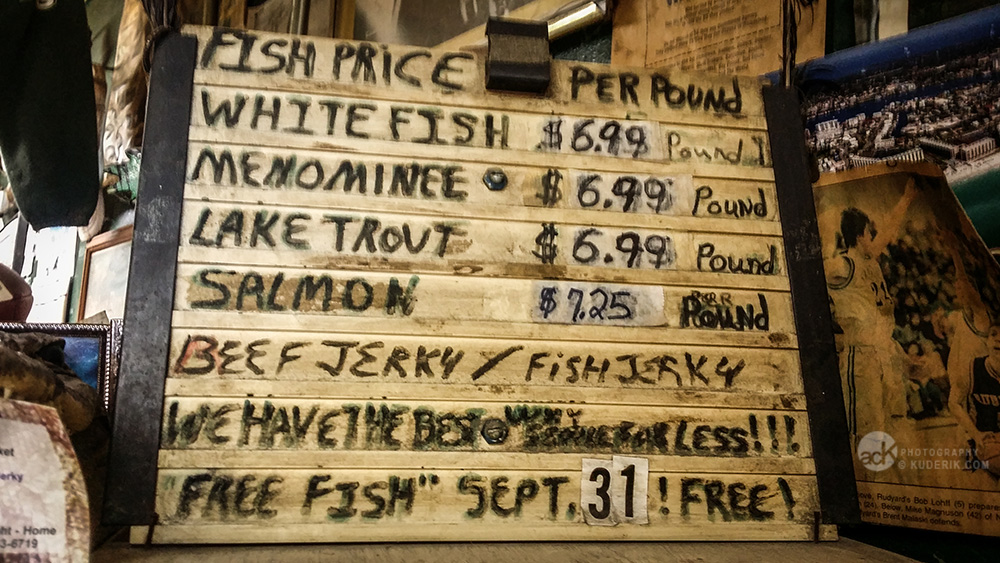 FISH PRICE PER POUND
WHITE FISH $6.99 Pound
MENOMINEE $6.99 Pound
LAKE TROUT $6.99 Pound
SALMON $7.25 PER POUND
BEEF JERKY / FISH JERKY
WE HAVE THE BEST LESS!!!
"FREE FISH" SEPT. 31 ! FREE!
ket
erky
ht - Home
3-6719
adK PHOTOGRAPHY
© KUDERIK.COM
ove, Rudyard's Bob Lohff (5) prepare
(24). Below, Mike Magnuson (42) of
yard's Brent Malaski defends.